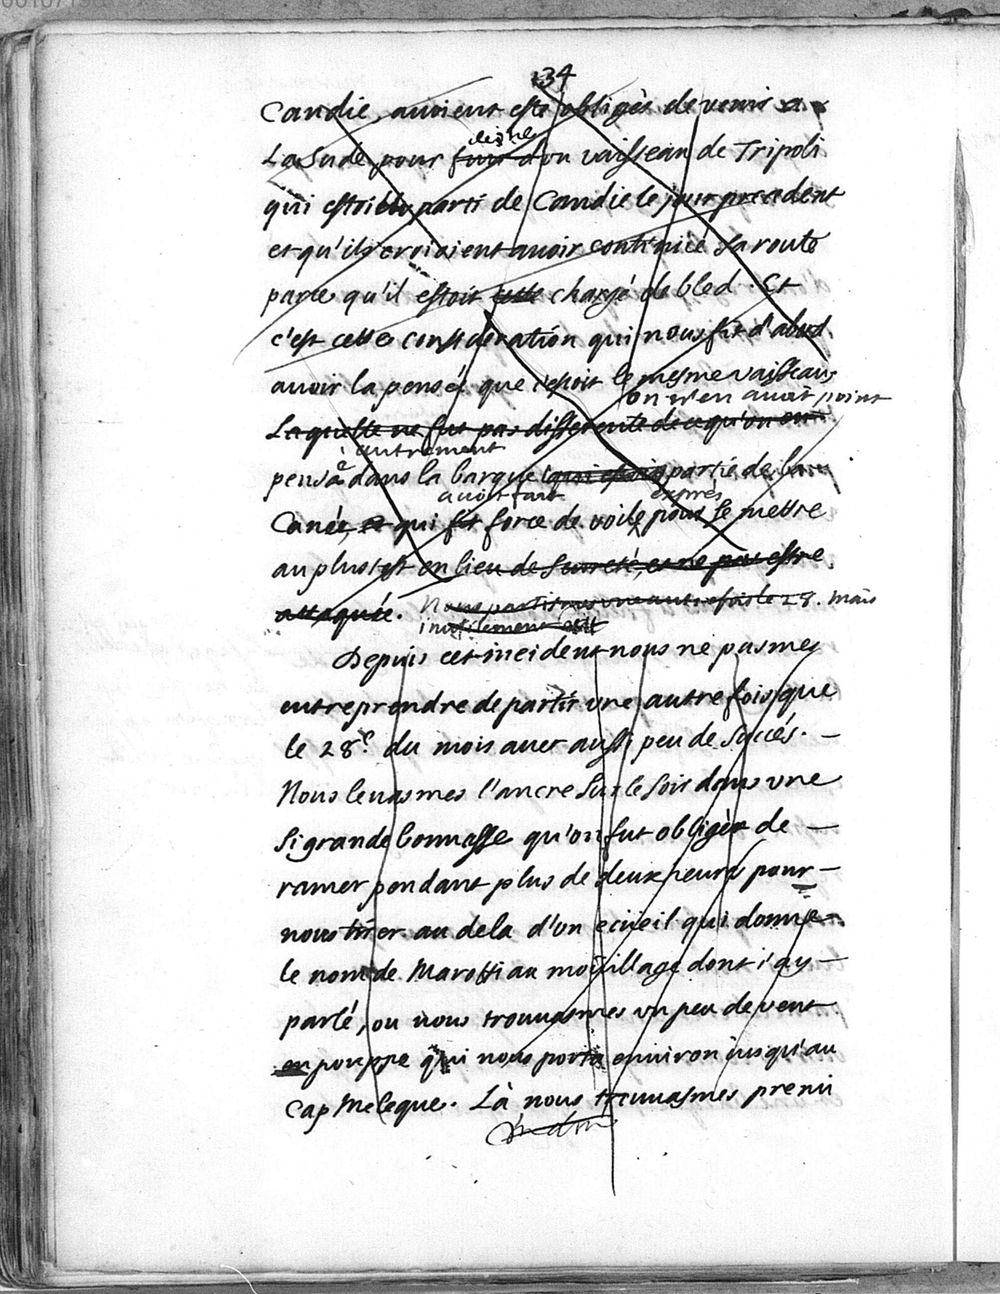 134
Candie, auoient esté obligés de venir a
La Sude pour fuir d'vn vaisseau de Tripoli
qui estoit parti de Candie le jour precedent
et qu'ils croiaient auoir continüé sa route
parce qu'il estoit chargé de bled. Et
c'est cette consideration qui nous fit d'abord
auoir la pensée que c'estoit le mesme vaisseau
on n'en auoit point
Laquelle ne fut pas differente de ce qu'on en
autrement
pensa dans la barque qui estoit partie de la
auoit fait exprés
Canée, et qui fit force de voile pour se mettre
au plustost en lieu de seureté, et ne pas estre
attaquée. Nous partismes vne autre fois le 28. mais
inutilement
Depuis cet incident nous ne pasmes
entreprendre de partir vne autre fois que
le 28e du mois auec aussi peu de succés.
Nous leuasmes l'ancre sur le soir dans vne
si grande bonnasse qu'on fut obligée de
ramer pendant plus de deux heures pour
nous tirer au dela d'vn ecüeil qui donne
le nom de Maratti au moüillage dont i'ay
parlé, ou nous trouuasmes vn peu de vent
en pouppe qui nous porta enuiron iusqu'au
Cap Meleque. Là nous trouuasmes premi